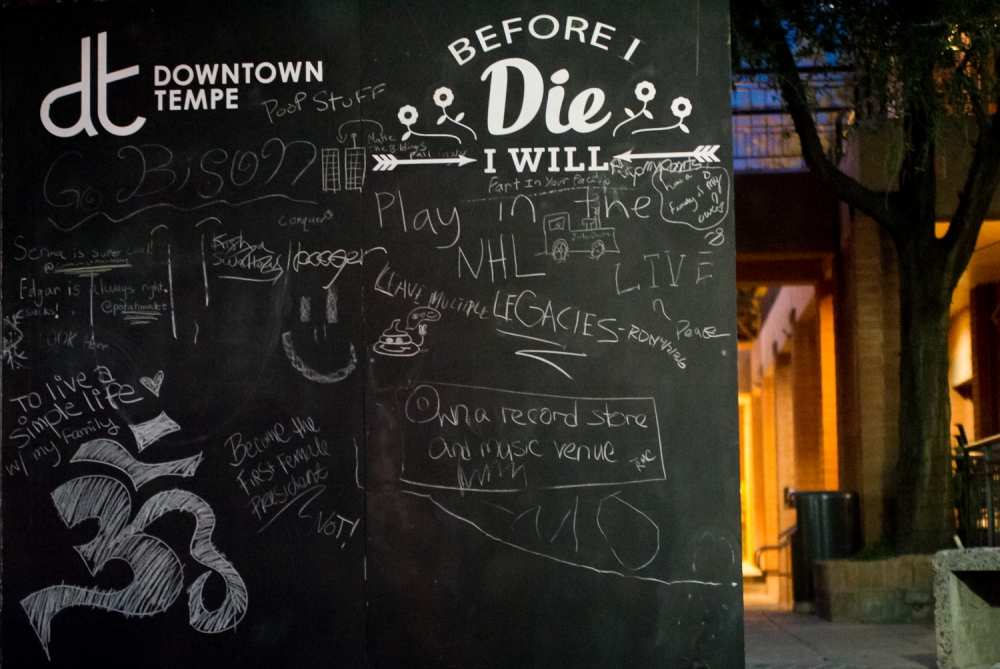 dt DOWNTOWN
TEMPE
Poop Stuff
BEFORE I
Die
I WILL
Go Bison
Make
the Bldings
Fart In Your Face
Play in the
NHL
have a
Family of my
own
conquer
is super
Edgar is always right.
sucks!
@potatomarket
booger
LIVE
n
Peace
LEAVE MULTIPLE LEGACIES-RON
To live a
simple life
w/ my Family
Become the
First Female
President
NOT!
Own a record store
and music venue
RMC
ॐ